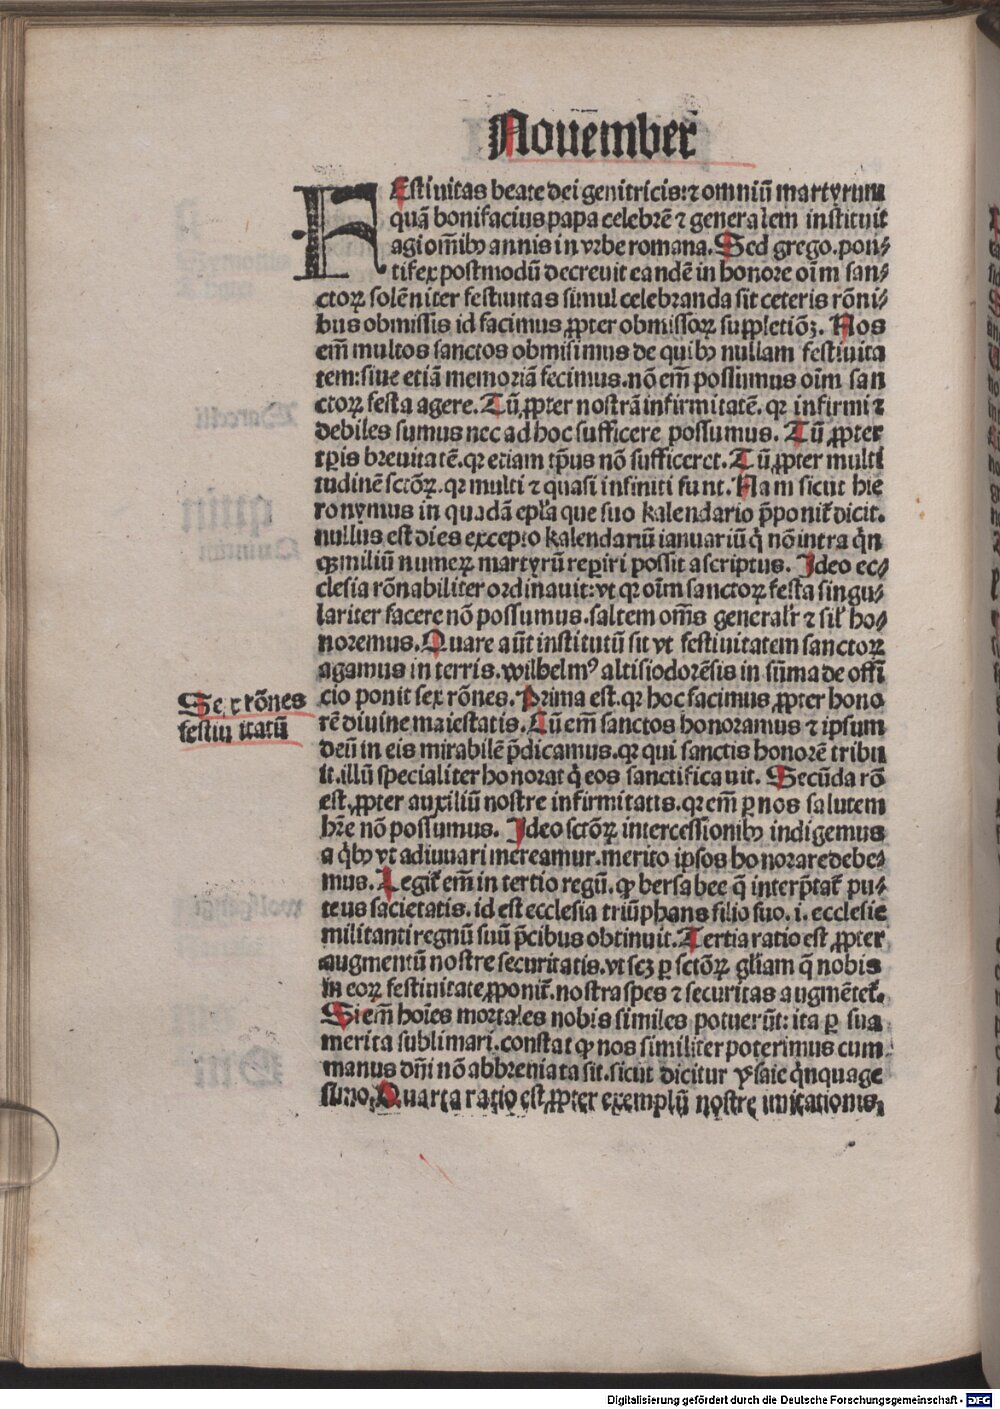 Nouēmber
FEstiuitas beate dei genitricis: ⁊ omniū martyrum
quā bonifacius papa celebrē ⁊ generalem instituit
agi om̄ibꝰ annis in vrbe romana. Sed grego. pon⸗
tifex postmodū decreuit eandē in honore oīm san⸗
ctoꝝ solēniter festiuitas simul celebranda sit ceteris rōni⸗
bus obmissis id facimus ꝓpter obmissoꝝ suppletiōꝫ. Nos
em̄ multos sanctos obmisimus de quibꝰ nullam festiuita
tem: siue etiā memoriā fecimus. nō em̄ possumus oīm san
ctoꝝ festa agere. Tū ꝓpter nostrā infirmitatē. qꝛ infirmi ⁊
debiles sumus nec ad hoc sufficere possumus. Tū ꝓpter
tꝑis breuitatē. qꝛ etiam tp̄us nō sufficeret. Tū ꝓpter multi
tudinē sctōꝝ. qꝛ multi ⁊ quasi infiniti sunt. Nam sicut hie
ronymus in quadā epl̄a que suo kalendario p̄ponit̄ dicit.
nullus est dies excepto kalendariū ianuariū q̇ nō intra q̇n
qꝫ miliū numeꝝ martyrū reꝑiri possit ascriptus. Ideo ec⸗
clesia rōnabiliter ordinauit: vt qꝛ oīm sanctoꝝ festa singu⸗
lariter facere nō possumus. saltem om̄s generalr̄ ⁊ sil̄ ho⸗
noremus. Quare aūt institutū sit vt festiuitatem sanctoꝝ
agamus in terris. wilhelmꝰ altisiodorēsis in sūma de offi
cio ponit sex rōnes. Prima est. qꝛ hoc facimus ꝓpter hono
rē diuine maiestatis. Cū em̄ sanctos honoramus ⁊ ipsum
deū in eis mirabilē p̄dicamus. qꝛ qui sanctis honorē tribu
it. illū specialiter honorat q̇ eos sanctificauit. Secūda rō
est ꝓpter auxiliū nostre infirmitatis. qꝛ em̄ ꝑ nos salutem
hr̄e nō possumus. Ideo sctōꝝ intercessionibꝰ indigemus
a q̇bꝰ vt adiuuari mereamur. merito ipsos honorare debe⸗
mus. Legit̄ em̄ in tertio regū. ꝙ bersabee q̄ interp̄tat̄ pu⸗
teus sacietatis. id est ecclesia triūphans filio suo. i. ecclesie
militanti regnū suū p̄cibus obtinuit. Tertia ratio est ꝓpter
augmentū nostre securitatis. vt scꝫ ꝑ sctōꝝ gl̄iam q̄ nobis
in eoꝝ festiuitate ꝓponit̄. nostra spes ⁊ securitas augmētet̄.
Si em̄ hoīes mortales nobis similes potuerūt: ita ꝑ sua
merita sublimari. constat ꝙ nos similiter poterimus cum
manus dn̄i nō abbreniata sit. sicut dicitur ysaie q̇nquage
simo. Quarta ratio est ꝓpter exemplū nostre imitationis.
Sex rōnes
festiuitatū
Digitalisierung gefördert durch die Deutsche Forschungsgemeinschaft - DFG